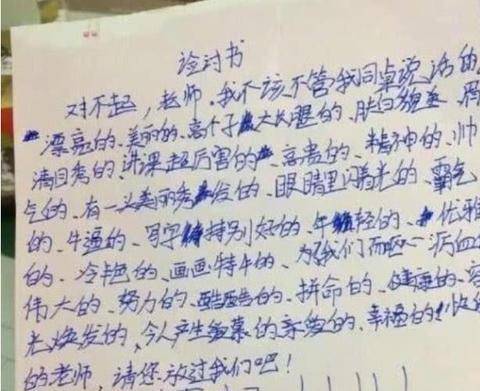 检讨书
对不起，老师，我不该不管我同桌说话的
漂亮的、美丽的、高个子大长腿的、肤白貌美、眉
清目秀的讲课超厉害的、高贵的、精神的、帅
气的、有一头美丽秀发的、眼睛里闪着光的、霸气
的、牛逼的、写字特别好的、年轻的、优雅
的、冷艳的、画画特牛的、为我们而呕心沥血
伟大的、努力的、酷酷的、拼命的、健康的、容
光焕发的、令人产生羡慕的亲爱的、幸福的
的老师，请您放过我们吧！